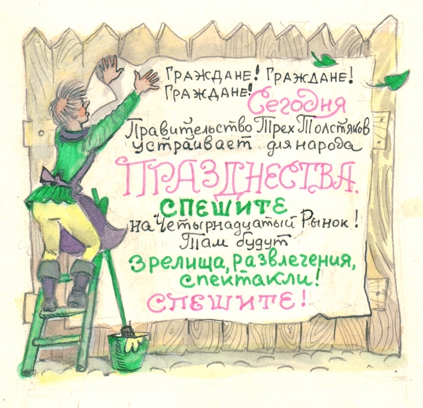 Граждане! Граждане!
Граждане!
Сегодня
Правительство Трех Толстяков
устраивает для народа
ПРАЗДНЕСТВА.
СПЕШИТЕ
на Четырнадцатый Рынок!
Там будут
зрелища, развлечения,
спектакли!
СПЕШИТЕ!